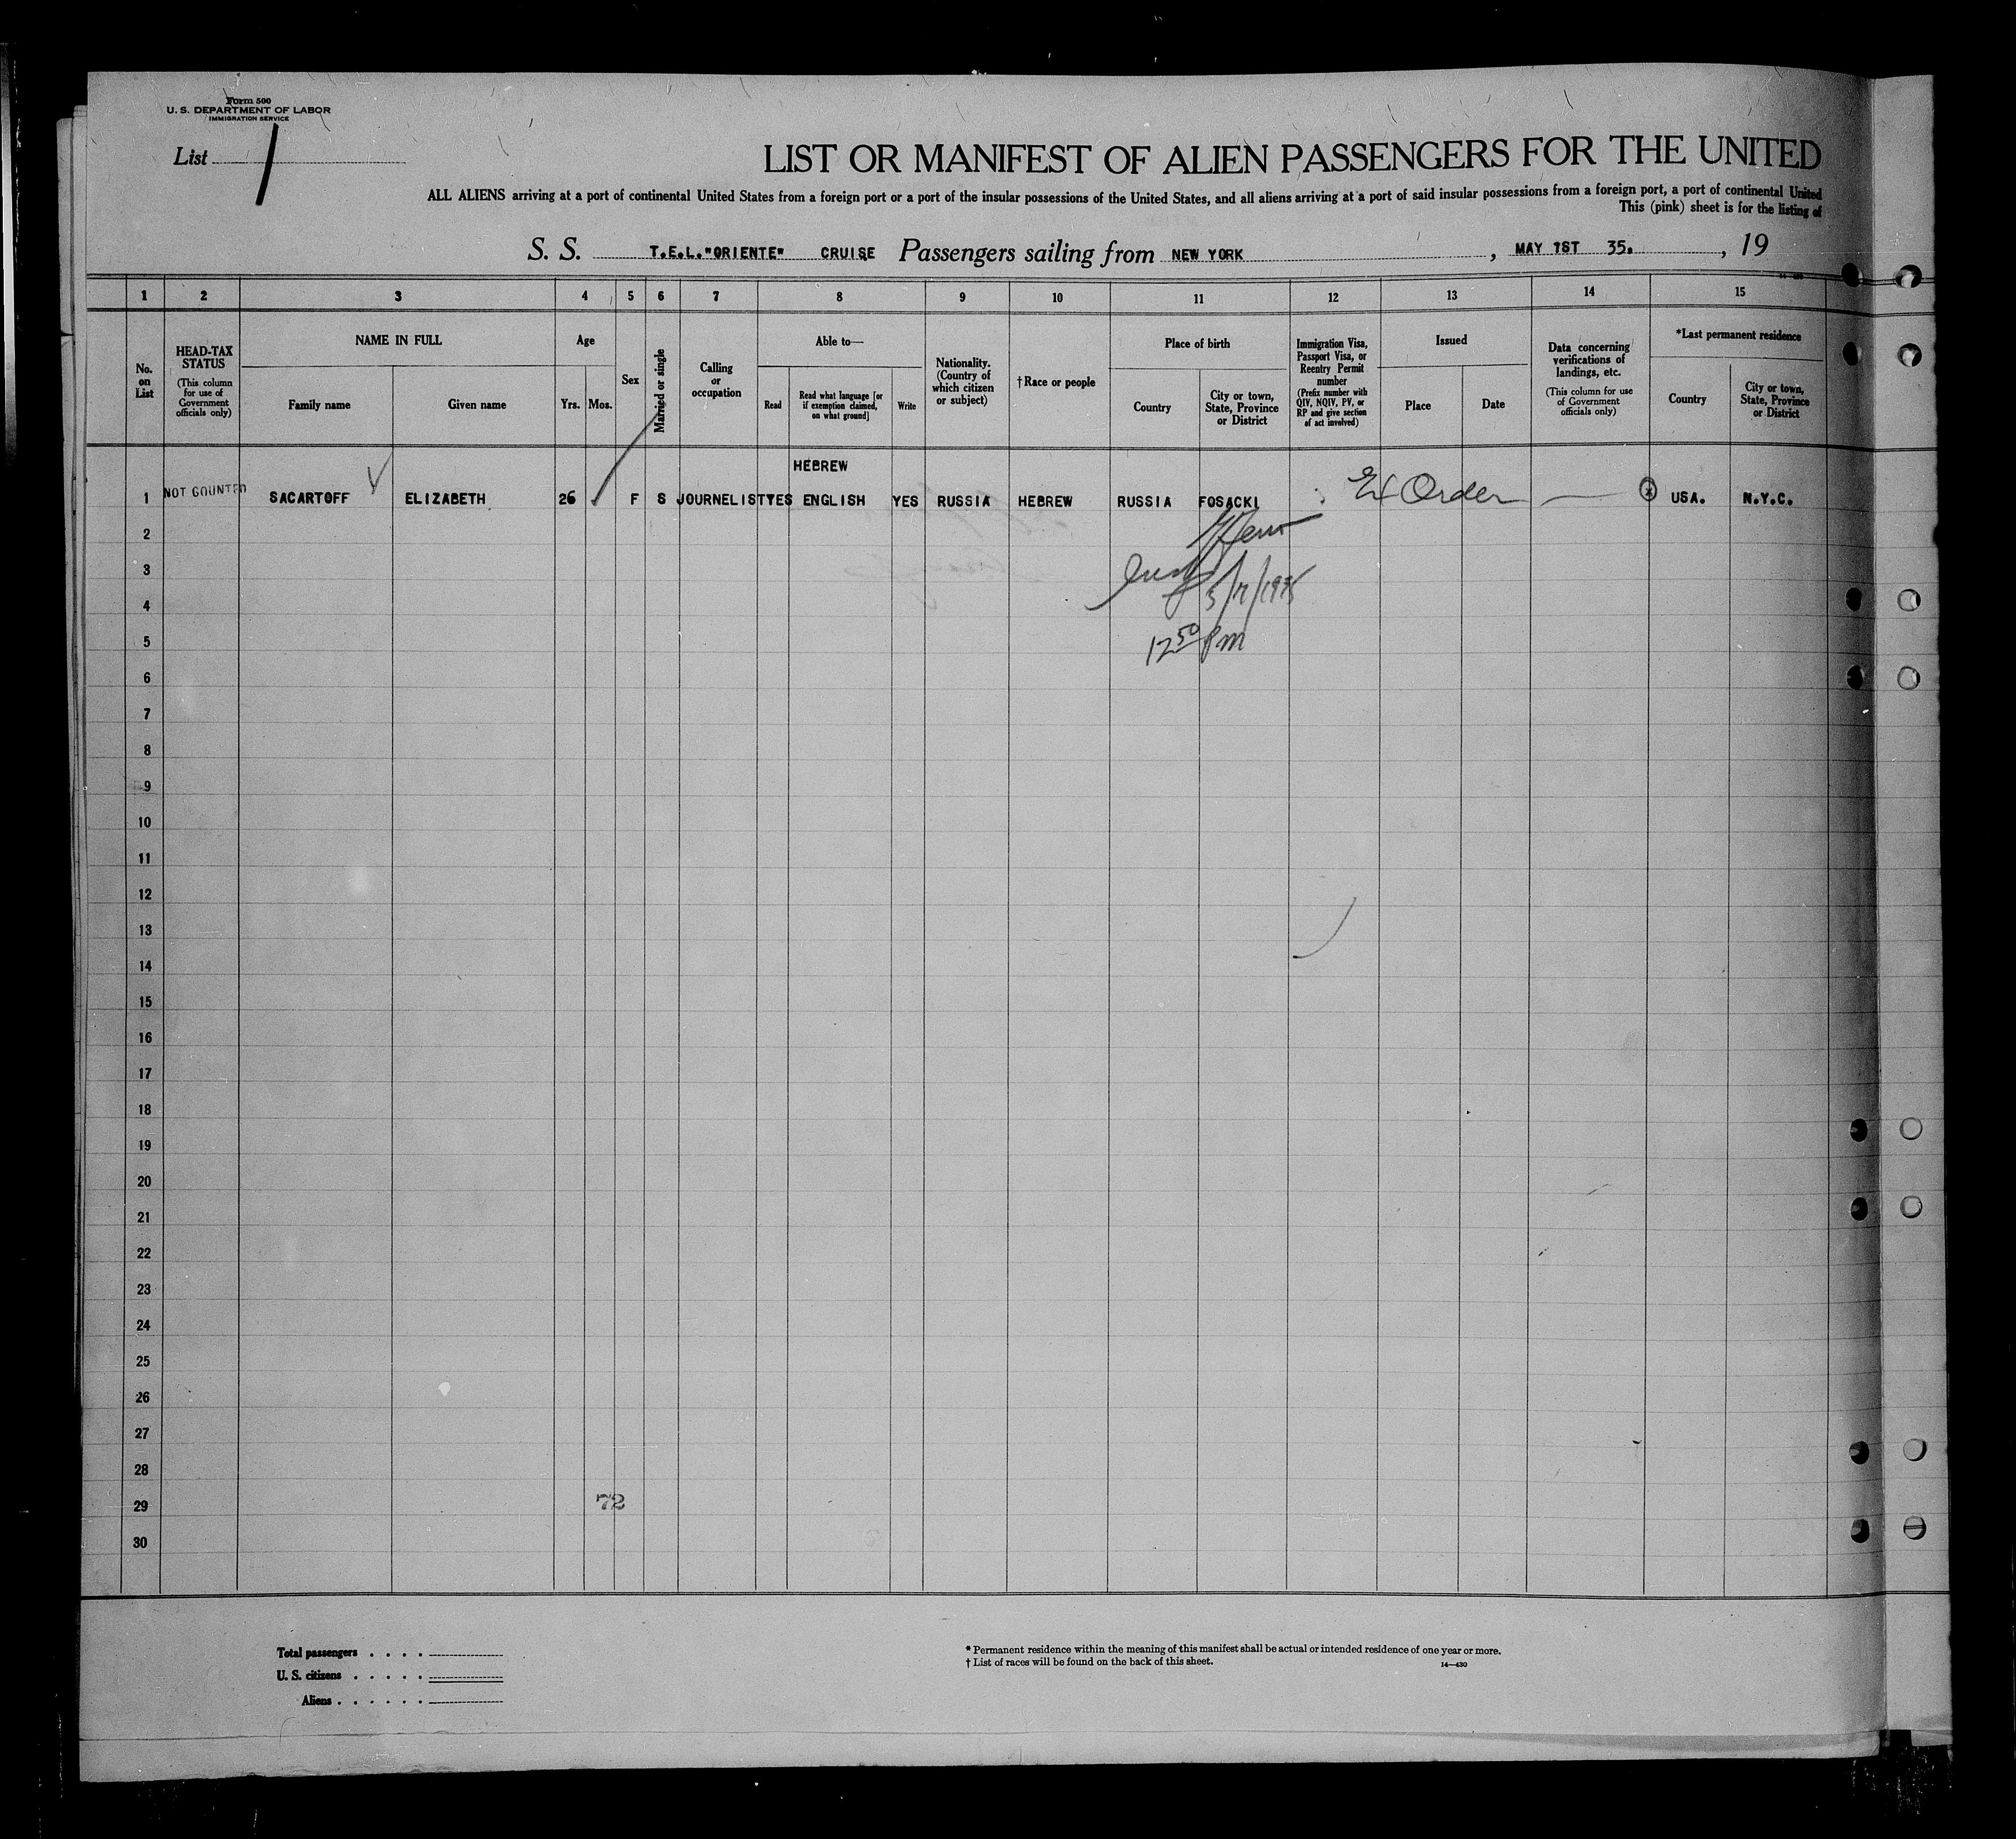 Form 500
U. S. DEPARTMENT OF LABOR
IMMIGRATION SERVICE
List 1
LIST OR MANIFEST OF ALIEN PASSENGERS FOR THE UNITED
ALL ALIENS arriving at a port of continental United States from a foreign port or a port of the insular possessions of the United States, and all aliens arriving at a port of said insular possessions from a foreign port, a port of continental United
This (pink) sheet is for the listing of
S. S. T.E.L."ORIENTE" CRUISE Passengers sailing from NEW YORK, MAY 1ST 35., 19
1 2 3 4 5 6 7 8 9 10 11 12 13 14 15
No. on List
HEAD-TAX STATUS
(This column for use of Government officials only)
NAME IN FULL
Family name
Given name
Age
Yrs. Mos.
Sex
Married or single
Calling or occupation
Able to—
Read
Read what language [or if exemption claimed, on what ground]
Write
Nationality. (Country of which citizen or subject)
†Race or people
Place of birth
Country
City or town, State, Province or District
Immigration Visa, Passport Visa, or Reentry Permit number
(Prefix number with QIV, NQIV, PV, or RP and give section of act involved)
Issued
Place
Date
Data concerning verifications of landings, etc.
(This column for use of Government officials only)
*Last permanent residence
Country
City or town, State, Province or District
HEBREW
1 NOT COUNTED SACARTOFF ELIZABETH 26 F S JOURNELIST YES ENGLISH YES RUSSIA HEBREW RUSSIA FOSACKI Ex Order USA. N.Y.C.
2
3
5/7/1935
4
12 50 Pm
5
6
7
8
9
10
11
12
13
14
15
16
17
18
19
20
21
22
23
24
25
26
27
28
29 72
30
Total passengers
U. S. citizens
Aliens
* Permanent residence within the meaning of this manifest shall be actual or intended residence of one year or more.
† List of races will be found on the back of this sheet.
14—430